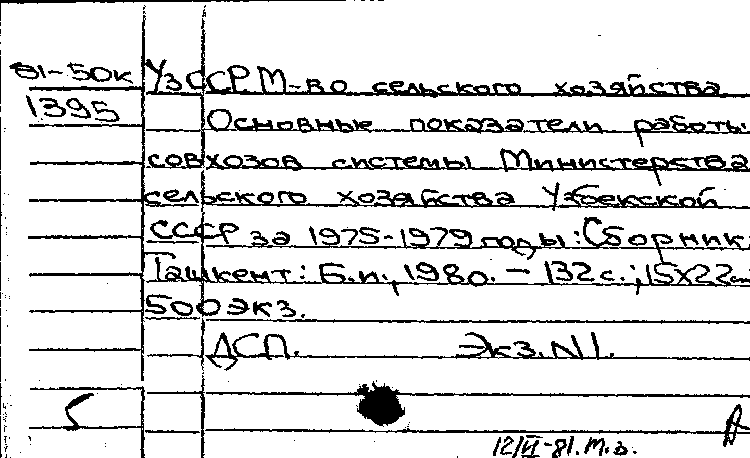 81-50к УзССР. М-во сельского хозяйства
1395 Основные показатели работы
совхозов системы Министерства
сельского хозяйства Узбекской
СССР за 1975-1979 годы: Сборник.
Ташкент: Б.и., 1980. - 132 с.; 15х22см
500 экз.
ДСП. Экз. N1.
5
12/VI-81. т.з.